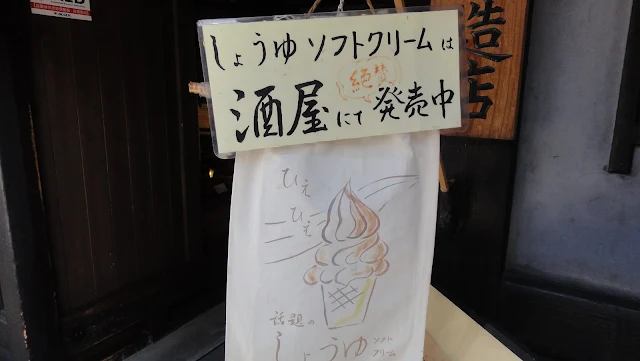 しょうゆソフトクリームは
絶賛
酒屋にて発売中
造店
ひえ
ひえ
話題の
しょうゆソフト
クリーム